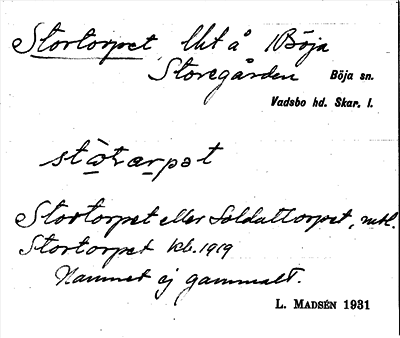 Stortorpet, lht å Böja
Storegården Böja sn.
Vadsbo hd. Skar. l.
stòtærpət
Stortorpet eller Soldattorpet, mtl.
Stortorpet kb. 1919
Namnet ej gammalt.
L. MADSÉN 1931